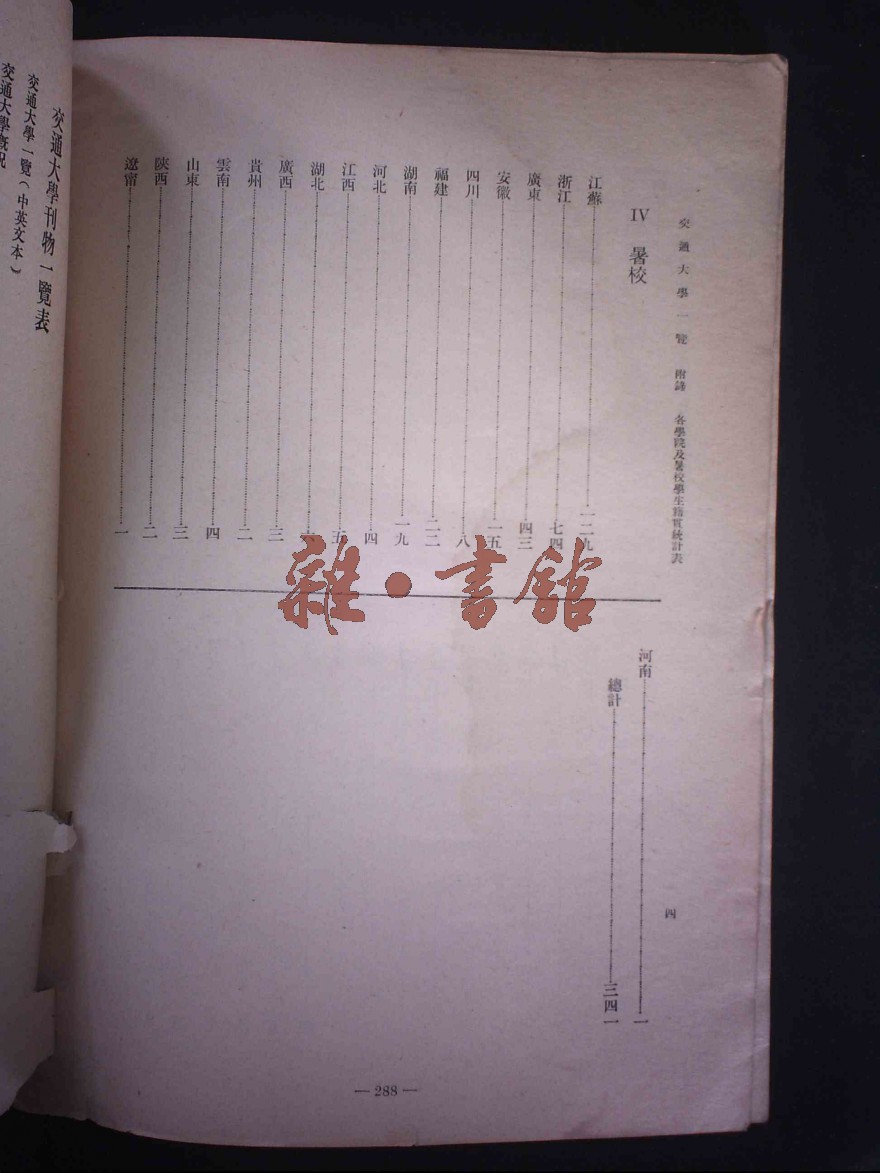 交通大學一覽 附錄 各學院及暑校學生籍貫統計表 四
IV 暑校
江蘇 一二九
浙江 七四
廣東 四三
安徽 一五
四川 八
福建 二二
湖南 一九
河北 四
江西 五
湖北 六
廣西 三
貴州 二
雲南 四
山東 三
陝西 二
遼甯 一
河南 一
總計 三四一
— 288 —
交通大學刊物一覽表
交通大學一覽（中英文本）
交通大學概況
雜·書館